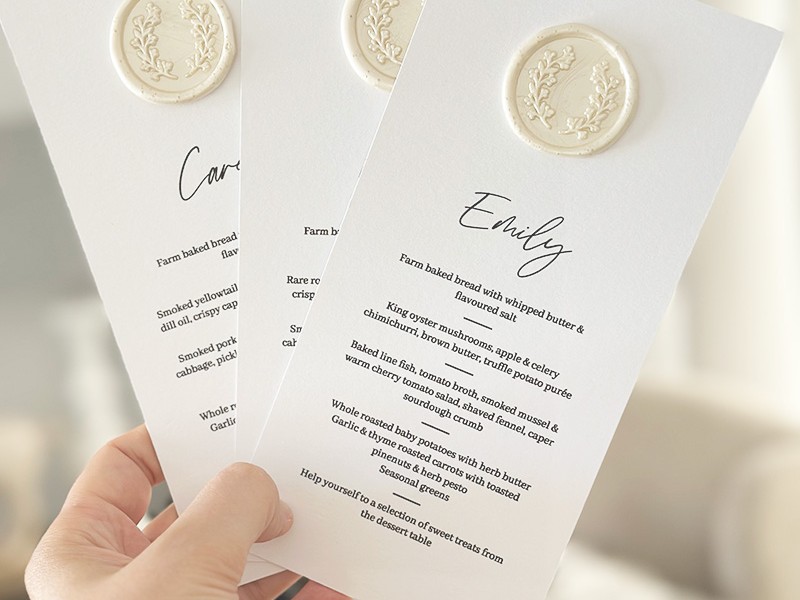 Farm baked bread
Smoked yellowtail
dill oil, crispy
Smoked pork
cabbage,
Whole
Farm
Rare
Emily
Farm baked bread with whipped butter &
flavoured salt
King oyster mushrooms, apple & celery
chimichurri, brown butter, truffle potato purée
Baked line fish, tomato broth, smoked mussel &
warm cherry tomato salad, shaved fennel, caper
sourdough crumb
Whole roasted baby potatoes with herb butter
Garlic & thyme roasted carrots with toasted
pinenuts & herb pesto
Seasonal greens
Help yourself to a selection of sweet treats from
the dessert table